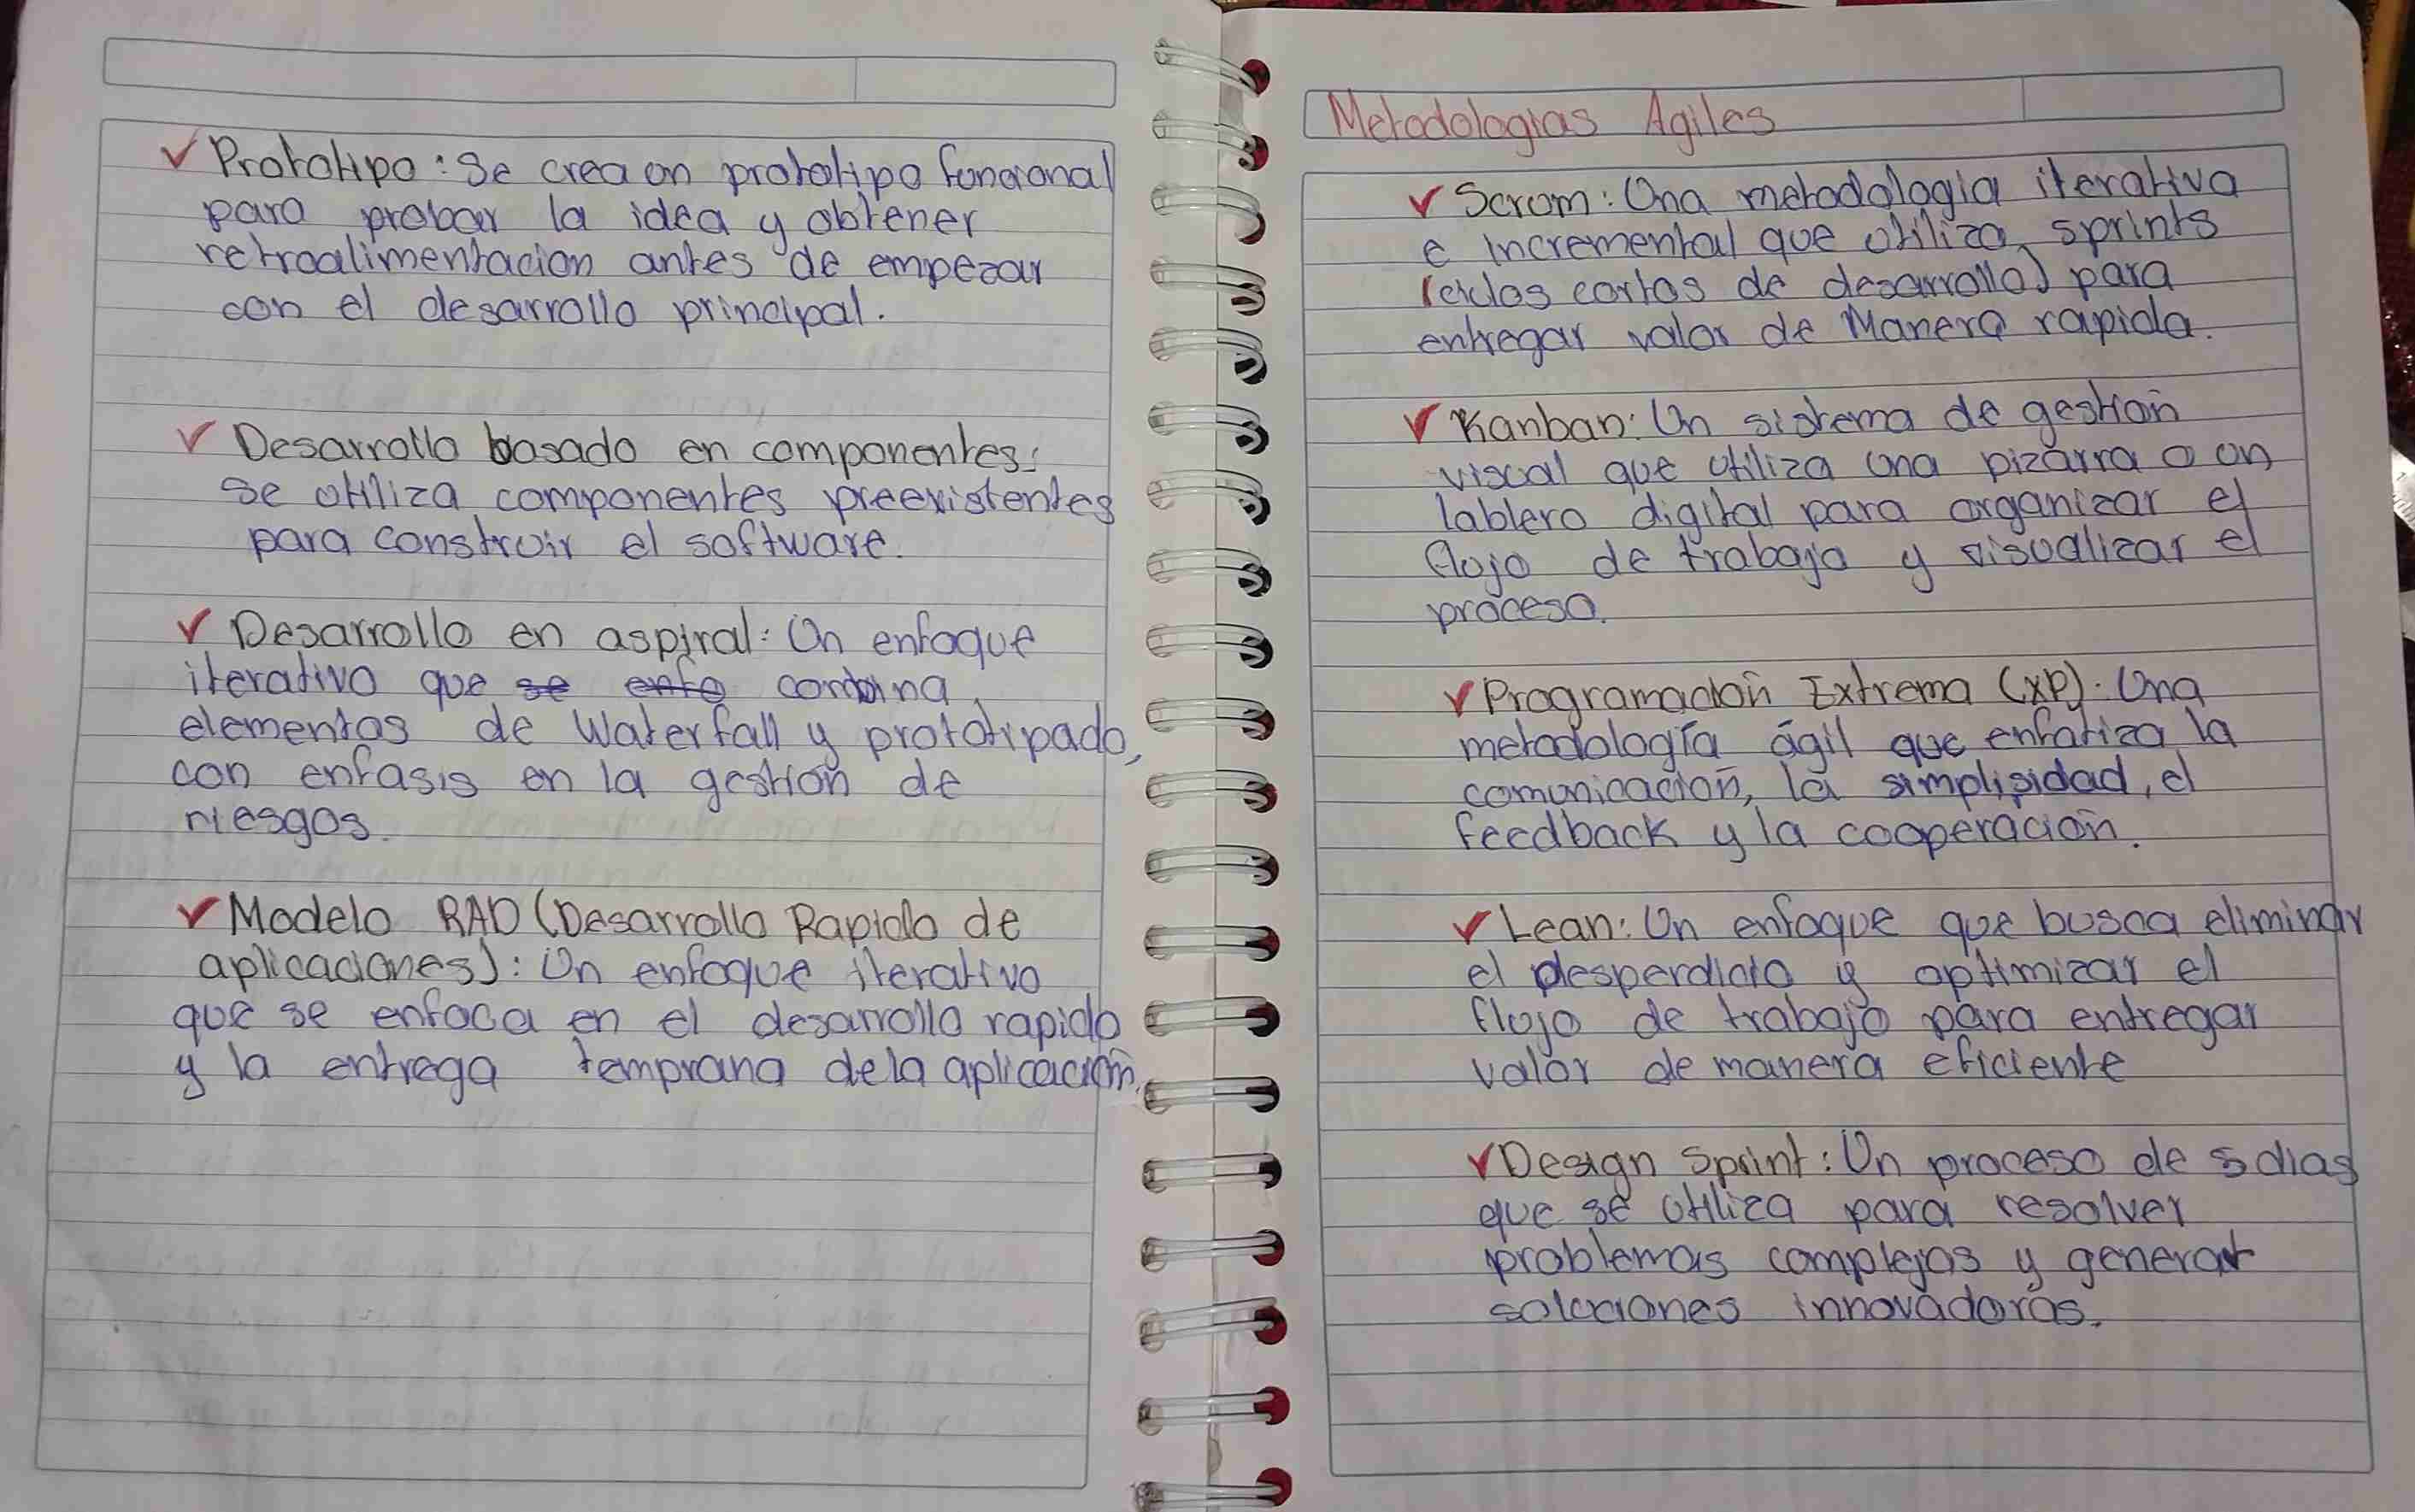 ✓ Prototipo: Se crea un prototipo funcional
para probar la idea y obtener
retroalimentacion antes de empezar
con el desarrollo principal.
✓ Desarrollo basado en componentes:
se utiliza componentes preexistentes
para construir el software.
✓ Desarrollo en aspiral: Un enfoque
iterativo que ~~se~~ ~~enfo~~ combina
elementos de Waterfall y prototipado,
con enfasis en la gestión de
riesgos.
✓ Modelo RAD (Desarrollo Rapido de
aplicaciones): Un enfoque iterativo
que se enfoca en el desarrollo rapido
y la entrega temprana de la aplicación.
Metodologias Agiles
✓ Scrum: Una metodologia iterativa
e incremental que utiliza sprints
(ciclos cortos de desarrollo) para
entregar valor de Manera rapida.
✓ Kanban: Un sistema de gestión
visual que utiliza una pizarra o un
tablero digital para organizar el
flujo de trabajo y visualizar el
proceso.
✓ Programación Extrema (XP): Una
metodología ágil que enfatiza la
comunicación, la simplisidad, el
feedback y la cooperación.
✓ Lean: Un enfoque que busca eliminar
el desperdicio y optimizar el
flujo de trabajo para entregar
valor de manera eficiente
✓ Design Sprint: Un proceso de 5 dias
que se utiliza para resolver
problemas complejos y generar
soluciones innovadoras.